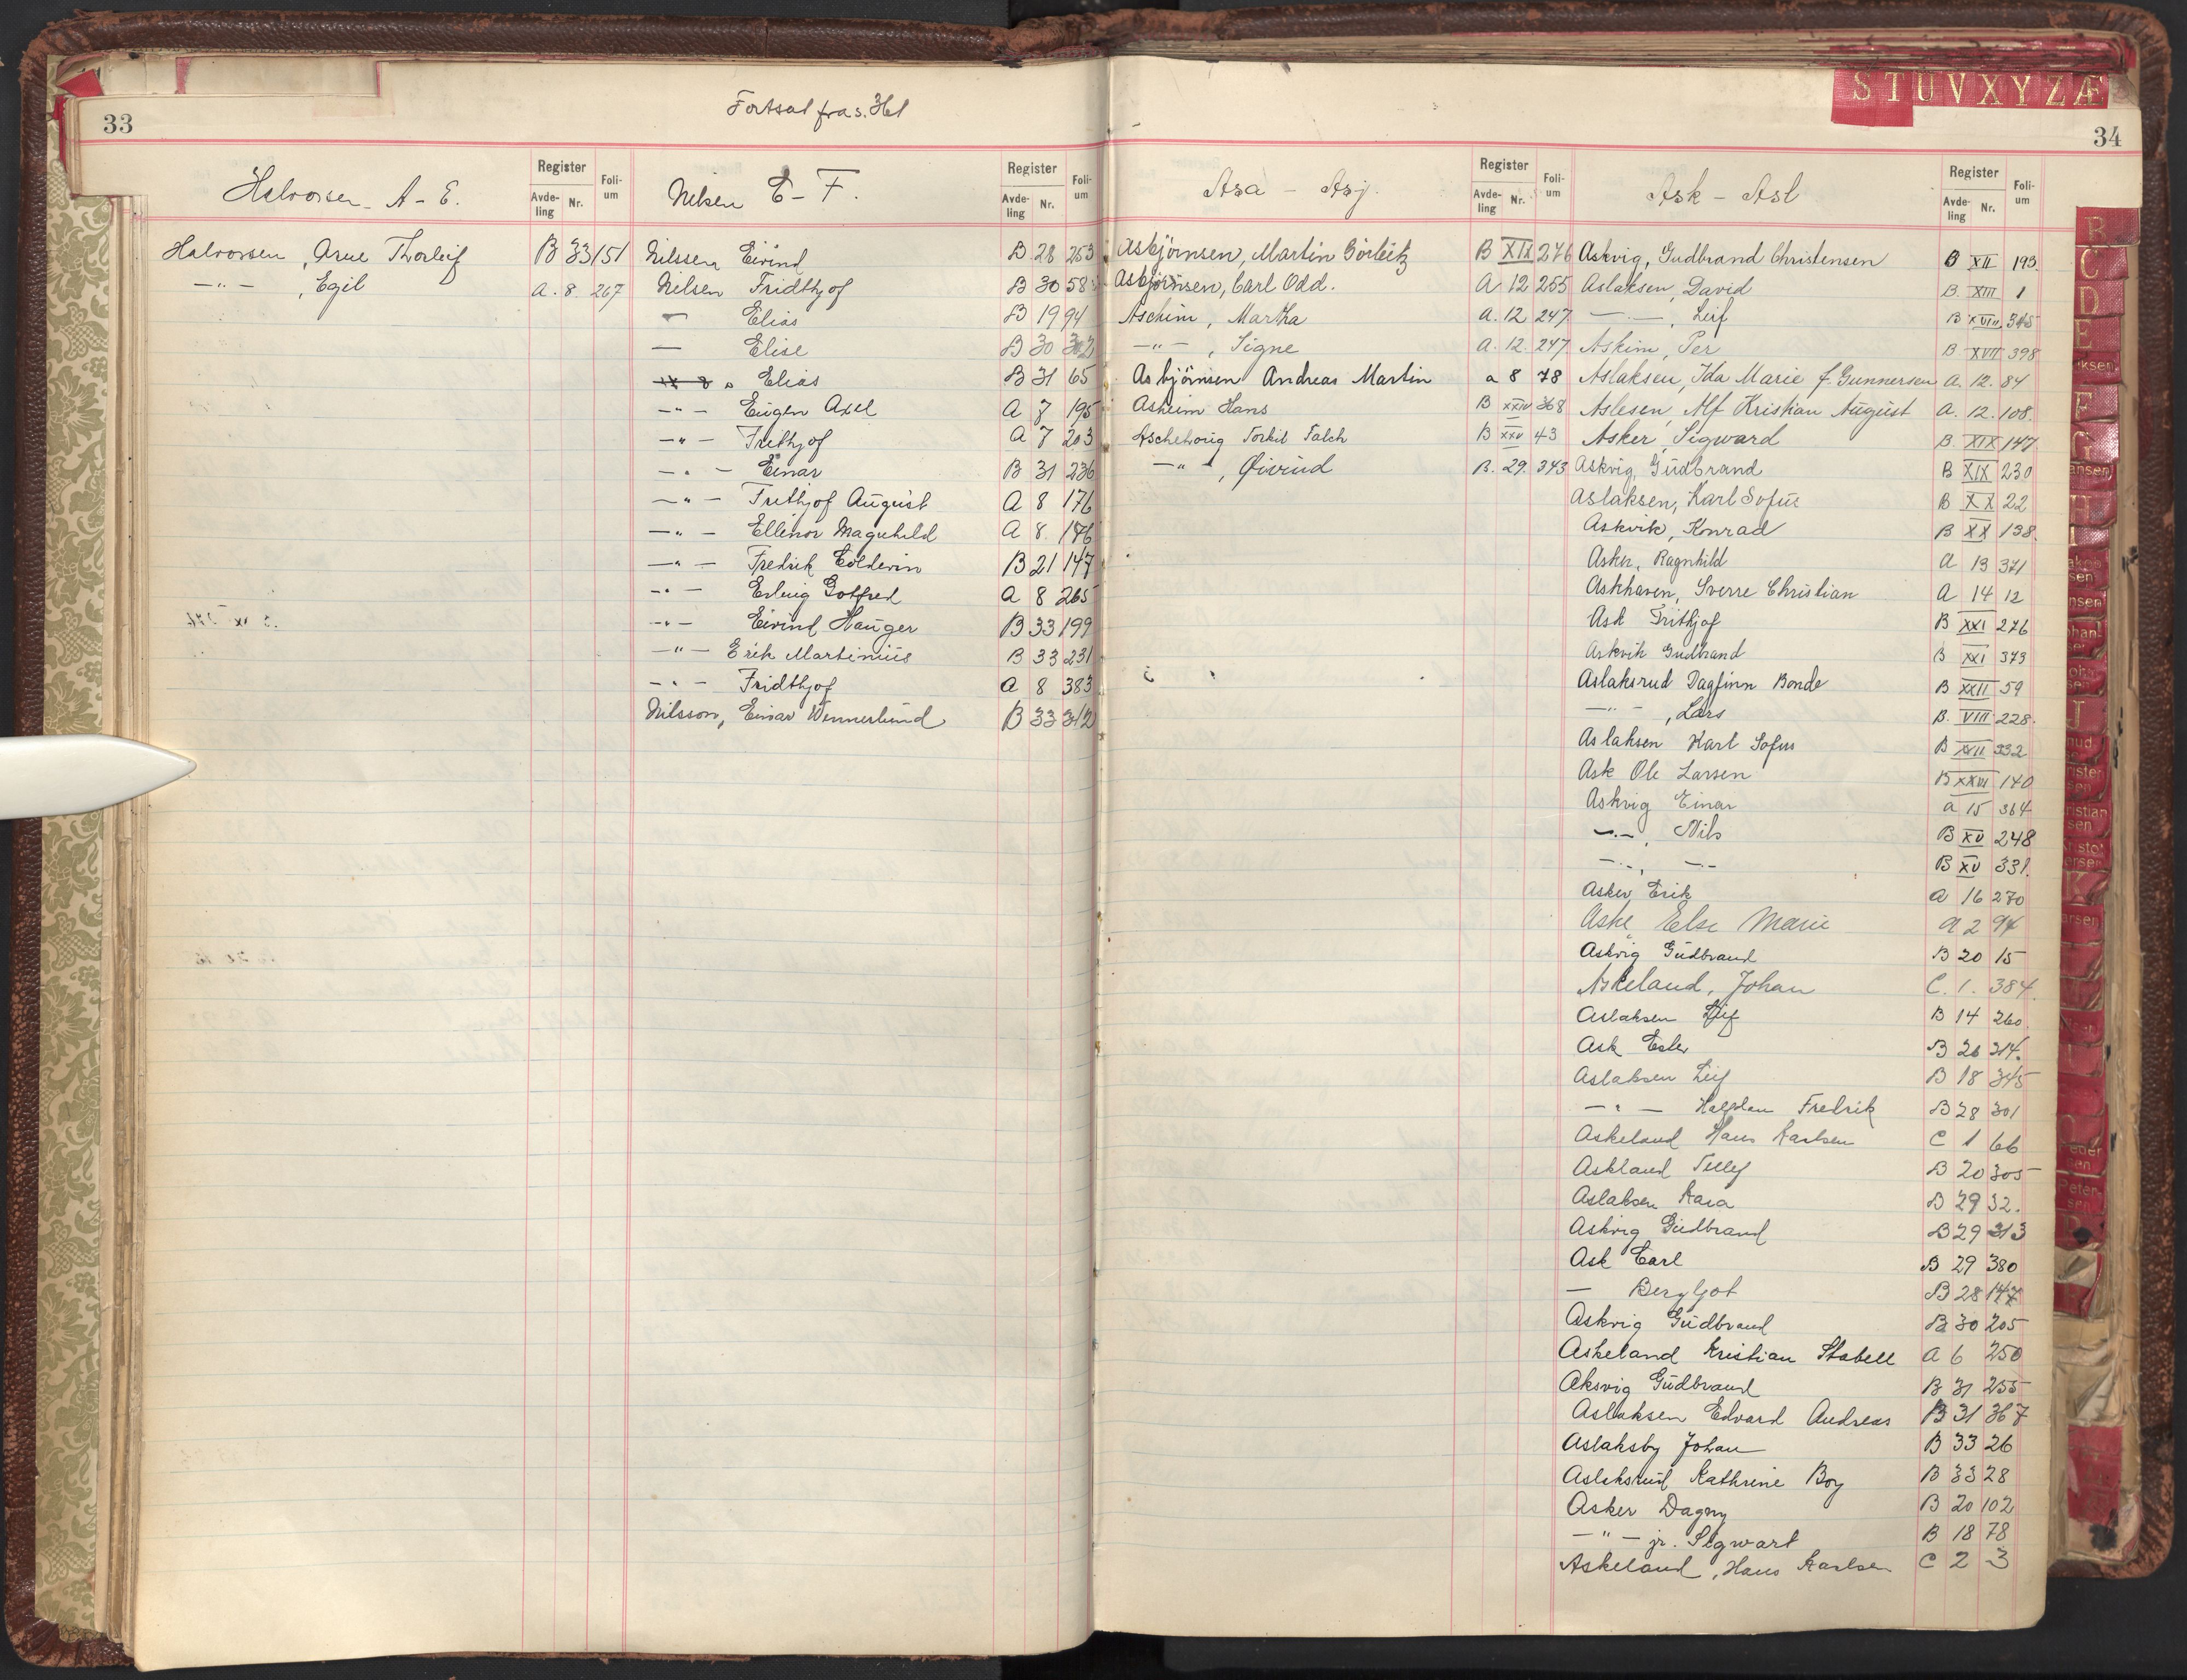 33
Fortsat fra s. 361
Halvorsen A - E.
Register
Avde-
ling
Nr.
Foli-
um
Halvorsen, Arne Thorleif B 33 151
—"— , Egil A. 8. 267
Nilsen E - F.
Register
Avde-
ling
Nr.
Foli-
um
Nilssen Eivind B 28 253
Nilsen Fridthjof B 30 58
— Elias B 19 94
— Elise B 30 302
Elias B 31 65
—"— Eugen Axel A 7 195
—"— Frithjof A 7 203
—"— Einar B 31 236
—"— Frithjof August A 8 176
—"— Ellinor Magnhild A 8. 176
—"— Fredrik Coldevin B 21 147
—"— Erling Gotfred A 8 265
—"— Eivind Hauger B 33 199
—"— Erik Martinius B 33 231
—"— Fridthjof A 8 383
Nilsson, Einar Wennerlund B 33 312
S T U V X Y Z Æ
34
Asa - Asj.
Register
Avde-
ling
Nr.
Foli-
um
Asbjörnsen, Martin Görlitz B XIX 276
Asbjörnsen, Carl Odd. A 12 255
Aschim, Martha A. 12 247
—"— , Signe A. 12. 247
Asbjörnsen Andreas Martin a 8 78
Asheim Hans B XXIV 368
Aschehoug Torkil Falch B XXV 43
—"— , Øivind B. 29. 343
Ask - Asl
Register
Avde-
ling
Nr.
Foli-
um
Askvig, Gudbrand Christensen B XII 193.
Aslaksen, David B. XIII 1
—"— , Leif B XVIII 345
Askim, Per B XVII 398
Aslaksen, Ida Marie f. Gunnersen A. 12. 84
Aslesen, Alf Kristian August A. 12. 108.
Asker, Sigward B. XIX 147
Askvig, Gudbrand B XIX 230
Aslaksen, Karl Sofus B XX 22
Askvik, Konrad B XX 138.
Asker, Ragnhild A 13 371
Askhaven, Sverre Christian A 14 12
Ask Frithjof B XXI 276
Askvik Gudbrand B XXI 373
Aslaksrud Dagfinn Bonde B XXII 59
—"— , Lars B. VIII 228.
Aslaksen Karl Sofus B XXII 332
Ask Ole Larsen B XXVI 140
Askvig Einar a 15 364
—"— , Nils B XV 248
—"— , —"— B XV 331.
Asker, Erik a 16 270
Aske Else Marie A 2 94
Askvig Gudbrand B 20 15
Askeland, Johan C. 1. 384.
Aslaksen Leif B 14 260.
Ask Ester B 26 314.
Aslaksen Leif B 18 345
—"— Halsten Fredrik B 28 301
Askeland Hans Karlsen C 1 66
Askland Telly B 20 305
Aslaksen Kaia B 29 32.
Askvig Gudbrand B 29 313
Ask Carl B 29 380
— Bergljot B 28 147
Askvig Gudbrand B 30 205
Askeland Kristian Stabell A 6 250
Aksvig Gudbrand B 31 255
Aslaksen Edvard Andreas B 31 367
Aslaksby Johan B 33 26
Aslaksrud Kathrine Boy B 33 28
Asker Dagny B 20 102
—"— jr. Sigwart B 18 78
Askeland, Hans Karlsen C 2 3